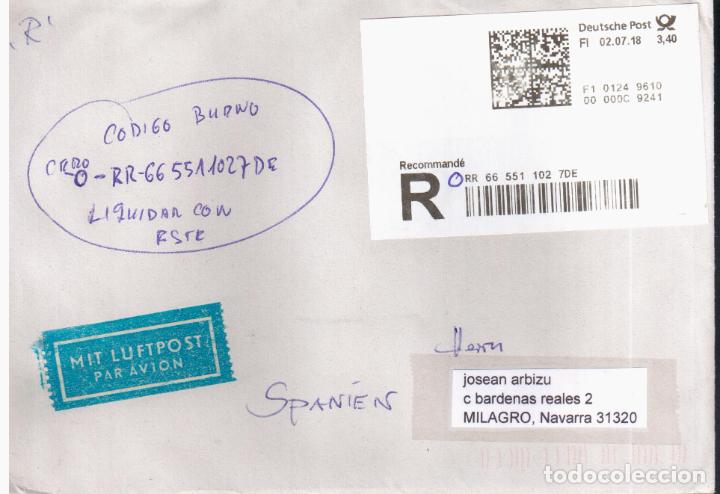 'R'
Deutsche Post
FI 02.07.18 3,40
F1 0124 9610
00 000C 9241
CODIGO BUENO
CERO
O-RR-66 5511027DE
LIQUIDAR CON
ESTE
Recommandé
R O RR 66 551 102 7DE
MIT LUFTPOST
PAR AVION
Herrn
SPANIEN
josean arbizu
c bardenas reales 2
MILAGRO, Navarra 31320
todocoleccion